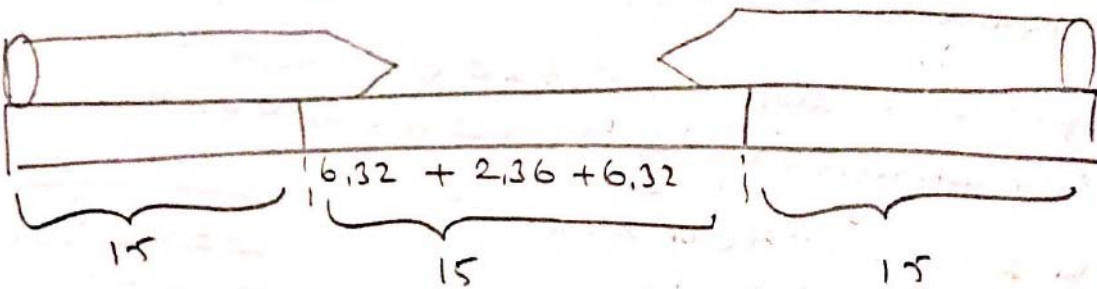 6,32 + 2,36 + 6,32
15 15 15